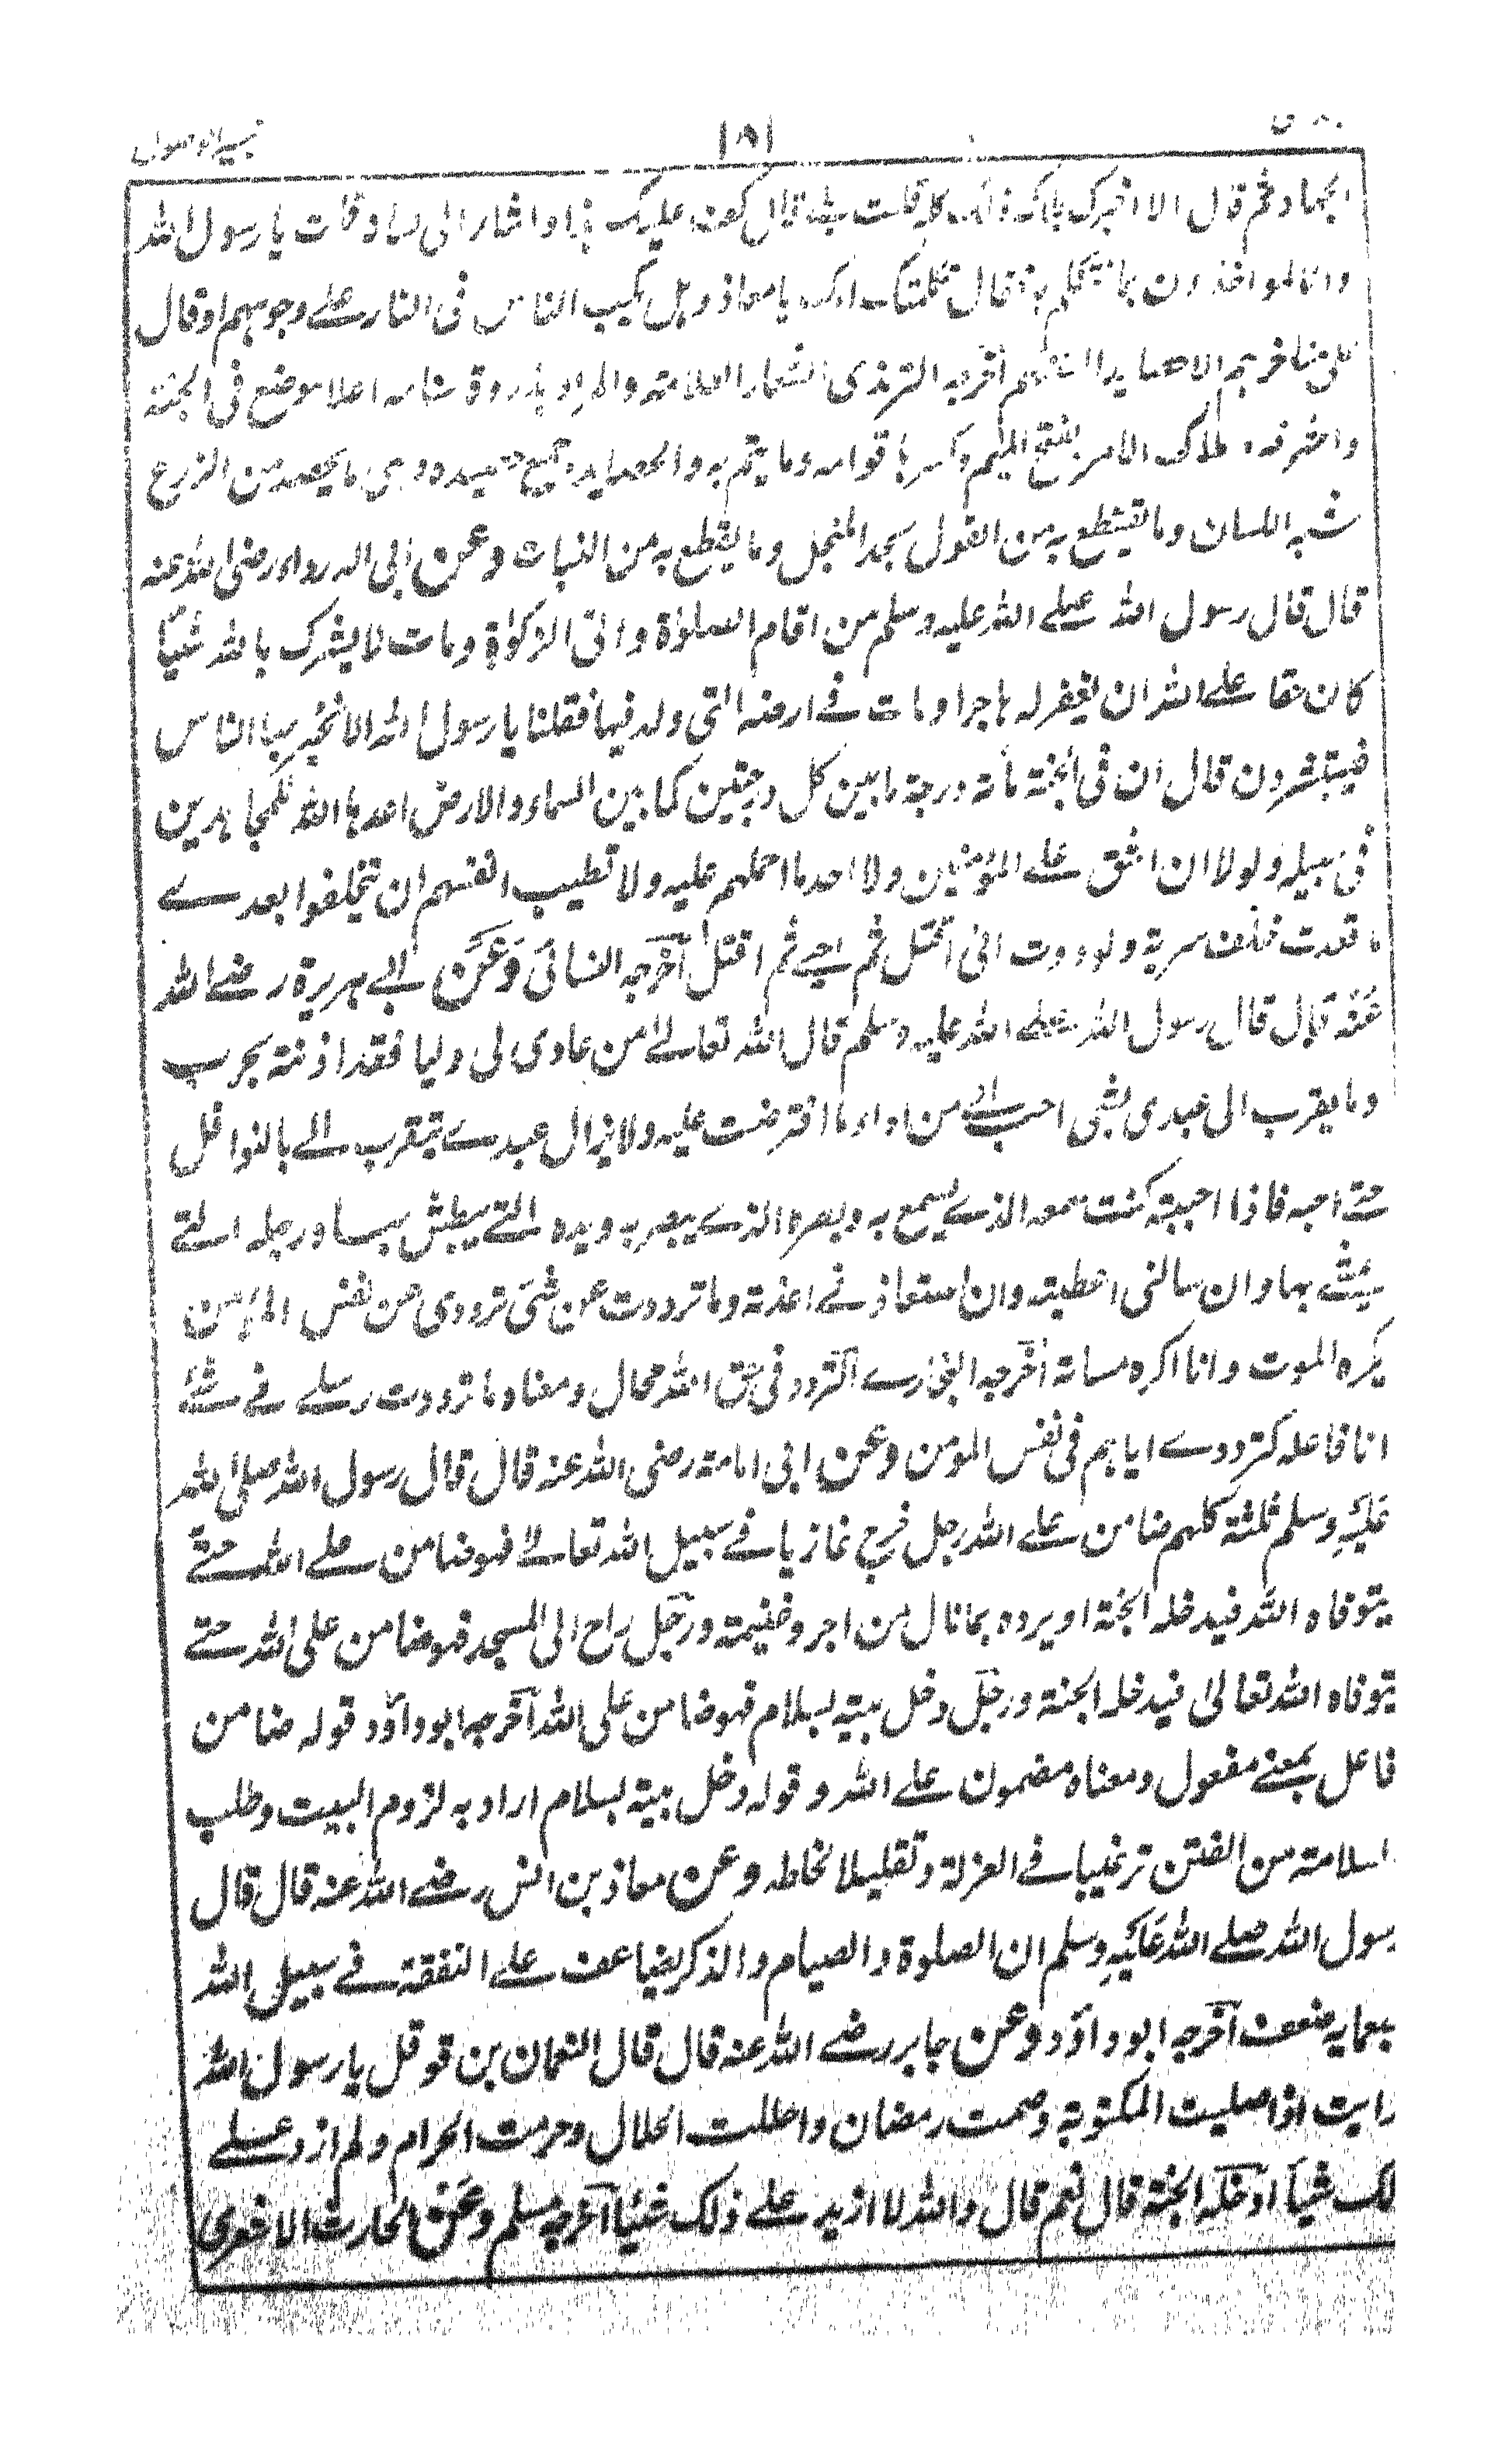 تيسير الوصول ١٨١
الجهاد ثم قال الا اخبرك بملاك ذلك كله قلت بلى قال كف عليك هذا واشار الى لسانه وقلت يا رسول الله
وانا لمواخذون بما نتكلم به فقال ثكلتك امك يا معاذ وهل يكب الناس فى النار على وجوههم او قال
على مناخرهم الا حصايد السنتهم اخرجه الترمذى الشعار العلامة والمراد بذروة سنامه اعلا موضع فى الجنة
واشرفه ملاك الامر بفتح الميم وكسرها قوامه وما يتم به والحصايد جمع حصيده وهى ما يحصد من الزرع
شبه اللسان وما يقتطع به من القول بحد المنجل وما يقطع به من النبات وعن ابى الدرداء رضى الله عنه
قال قال رسول الله صلے الله عليه وسلم من اقام الصلوٰة واتى الزكوٰة ومات لا يشرك بالله شيأ
كان حقا علے الله ان يغفر له هاجر او مات فے ارضه التى ولد فيها فقلنا يا رسول الله الا نخبر بها الناس
فيبتشرون قال ان فى الجنة مأته درجة ما بين كل درجتين كما بين السماء والارض اعدها الله للمجاهدين
فى سبيله ولولا ان اشق علے المؤمنين ولا اجد ما احملهم عليه ولا تطيب انفسهم ان يتخلفوا بعدے
ما قعدت خلف سرية ولوددت انى اقتل ثم احيے ثم اقتل اخرجه النسائى وعن ابے هريرة رضے الله
عنه قال قال رسول الله صلے الله عليه وسلم قال الله تعالےٰ من عادى لى وليا فقد اذنته بحرب
وما يقرب الى عبدى بشى احب الے من اداء ما افترضت عليه ولا يزال عبدے يتقرب الے بالنوافل
حتے احبه فاذا احببته كنت سمعه الذے يسمع به وبصره الذے يبصر به ويده التے يبطش بها ورجله التے
يمشے بها وان سالنى اعطيته وان استعاذنے اعذته وما ترددت عن شى ترددى عن نفس المؤمن
يكره الموت وانا اكره مساته اخرجه البخارے التردد فى حق الله محال ومعناه ما ترددت رسلے فے شئے
انا فاعله كترددے اياهم فى نفس المومن وعن ابى امامة رضى الله عنه قال قال رسول الله صلى الله
عليه وسلم ثلثة كلهم ضامن علے الله رجل خرج غازيا فے سبيل الله تعالےٰ فهو ضامن علے الله حتے
يتوفاه الله فيدخله الجنة او يرده بما نال من اجر وغنيمة ورجل راح الى المسجد فهو ضامن على الله حتے
يتوفاه الله تعالىٰ فيدخله الجنة ورجل دخل بيته بسلام فهو ضامن على الله اخرجه ابو داؤد قوله ضامن
فاعل بمعنے مفعول ومعناه مضمون علے الله وقوله دخل بيته بسلام اراد به لزوم البيت وطلب
السلامته من الفتن ترغيبا فے العزلة وتقليلا لخاطه وعن معاذ بن انس رضے الله عنه قال قال
رسول الله صلے الله عليه وسلم ان الصلوة والصيام والذكر يضاعف علے النفقة فے سبيل الله
بسبعماية ضعف اخرجه ابو داؤد وعن جابر رضے الله عنه قال قال النعمان بن قوقل يا رسول الله
رايت اذا صليت المكتوبة وصمت رمضان واحللت الحلال وحرمت الحرام ولم ازد علے
لك شيأ ادخل الجنة قال نعم قال والله لا ازيد علے ذلك شيئا اخرجه مسلم وعن الحارث الاشعرى